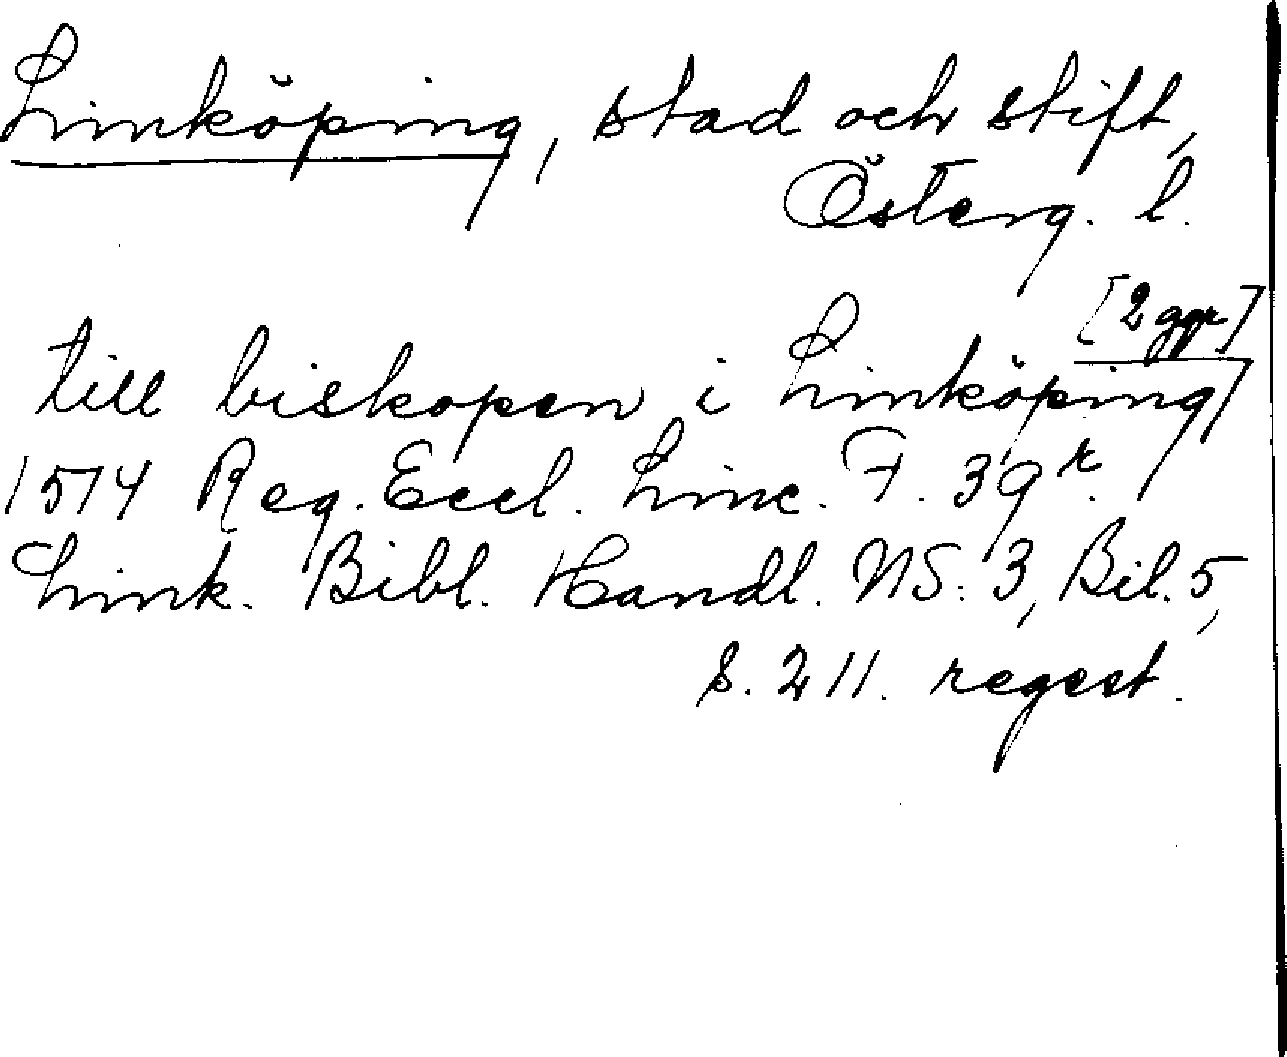 Linköping, stad och stift,
Österg. l.
[2 ggr]
till biskopen i Linköping
1514 Reg. Eccl. Linc. F. 39r.
Link. Bibl. Handl. NS: 3, Bil. 5,
s. 211. regest.